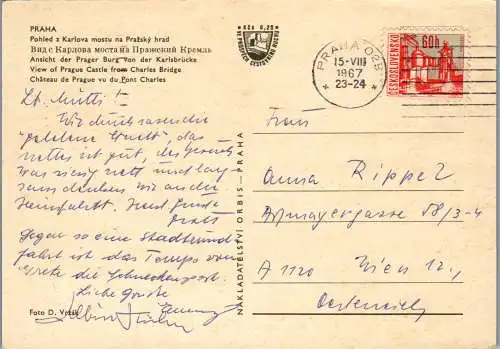 PRAHA
Pohled z Karlova mostu na Pražský hrad
Вид с Карлова моста на Пражский Кремль
Ansicht der Prager Burg von der Karlsbrücke
View of Prague Castle from Charles Bridge
Château de Prague vu du Pont Charles
Kčs 0,20
PRAHA 025
15-VIII
1967
23-24
60h
ČESKOSLOVENSKO
Lb. Mutti!
Wir durchrasen die
"goldene Stadt", das
ist gut,
was nett und lang-
sam denken wir an die
Heimfahrt.
Gegen so eine Stadtrund-
fahrt ist das Tempo von
Grete die Schneckenpost.
Liebe Grüße
NAKLADATELSTVÍ ORBIS - PRAHA
Frau
Anna Rippel
Aßmayergasse 58/3-4
A 1120 Wien 12.,
Oesterreich
Foto D.